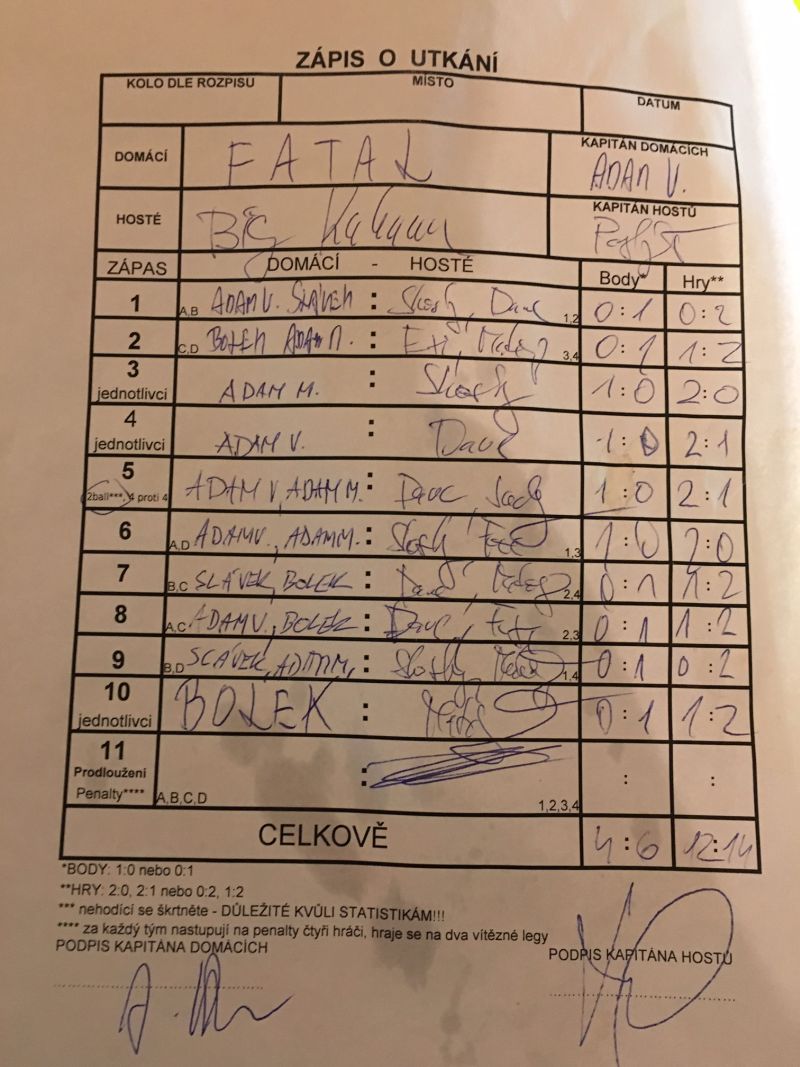 ZÁPIS O UTKÁNÍ
KOLO DLE ROZPISU MÍSTO DATUM
DOMÁCÍ FATAL KAPITÁN DOMÁCÍCH
ADAM V.
HOSTÉ BIG KAPITÁN HOSTŮ
ZÁPAS DOMÁCÍ - HOSTÉ Body* Hry**
1 A,B ADAM V. SLÁVEK : 1,2 0:1 0:2
2 C,D BOLEK ADAM M. : 3,4 0:1 1:2
3 jednotlivci ADAM M. : 1:0 2:0
4 jednotlivci ADAM V. : Dave 1:0 2:1
5 2ball***, 4 proti 4 ADAM V, ADAM M. : Dave, 1:0 2:1
6 A,D ADAM V., ADAM M. : 1,3 1:0 2:0
7 B,C SLÁVEK, BOLEK : Dave, 2,4 0:1 1:2
8 A,C ADAM V., BOLEK : Dave, 2,3 0:1 1:2
9 B,D SLÁVEK, ADAM M. : 1,4 0:1 0:2
10 jednotlivci BOLEK : 0:1 1:2
11
Prodloužení
Penalty**** A,B,C,D : 1,2,3,4 : :
CELKOVĚ 4:6 12:14
*BODY: 1:0 nebo 0:1
**HRY: 2:0, 2:1 nebo 0:2, 1:2
*** nehodící se škrtněte - DŮLEŽITÉ KVŮLI STATISTIKÁM!!!
**** za každý tým nastupují na penalty čtyři hráči, hraje se na dva vítězné legy
PODPIS KAPITÁNA DOMÁCÍCH PODPIS KAPITÁNA HOSTŮ